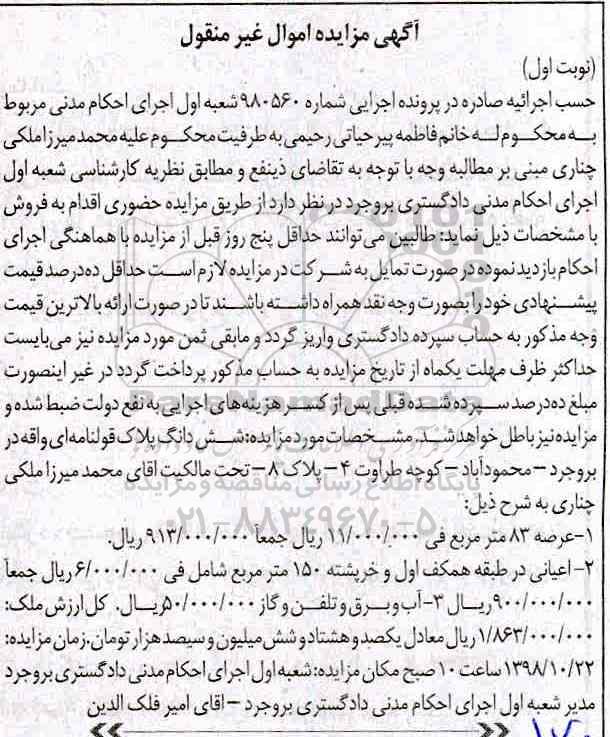 آگهی مزایده اموال غیر منقول
(نوبت اول)
حسب اجرائیه صادره در پرونده اجرایی شماره ۹۸۰۵۶۰ شعبه اول اجرای احکام مدنی مربوط
به محکوم له خانم فاطمه پیرحیاتی رحیمی به طرفیت محکوم علیه محمد میرزا ملکی
چناری مبنی بر مطالبه وجه با توجه به تقاضای ذینفع و مطابق نظریه کارشناسی شعبه اول
اجرای احکام مدنی دادگستری بروجرد در نظر دارد از طریق مزایده حضوری اقدام به فروش
با مشخصات ذیل نماید: طالبین می‌توانند حداقل پنج روز قبل از مزایده با هماهنگی اجرای
احکام بازدید نموده در صورت تمایل به شرکت در مزایده لازم است حداقل ده‌درصد قیمت
پیشنهادی خود را بصورت وجه نقد همراه داشته باشند تا در صورت ارائه بالاترین قیمت
وجه مذکور به حساب سپرده دادگستری واریز گردد و مابقی ثمن مورد مزایده نیز می‌بایست
حداکثر ظرف مهلت یکماه از تاریخ مزایده به حساب مذکور پرداخت گردد در غیر اینصورت
مبلغ ده‌درصد سپرده شده قبلی پس از کسر هزینه‌های اجرایی به نفع دولت ضبط شده و
مزایده نیز باطل خواهد شد. مشخصات مورد مزایده: شش دانگ پلاک قولنامه‌ای واقه در
بروجرد – محمودآباد – کوچه طراوت ۴ – پلاک ۸ – تحت مالکیت اقای محمد میرزا ملکی
پایگاه اطلاع رسانی مناقصه و مزایده
چناری به شرح ذیل:
۰۲۱-۸۸۳۴۹۶۷۰-۵
۱- عرصه ۸۳ متر مربع فی ۱۱/۰۰۰/۰۰۰ ریال جمعاً ۹۱۳/۰۰۰/۰۰۰ ریال.
۲- اعیانی در طبقه همکف اول و خرپشته ۱۵۰ متر مربع شامل فی ۶/۰۰۰/۰۰۰ ریال جمعاً
۹۰۰/۰۰۰/۰۰۰ ریال ۳- آب و برق و تلفن و گاز ۵۰/۰۰۰/۰۰۰ ریال. کل ارزش ملک:
۱/۸۶۳/۰۰۰/۰۰۰ ریال معادل یکصد و هشتاد و شش میلیون و سیصد هزار تومان. زمان مزایده:
۱۳۹۸/۱۰/۲۲ ساعت ۱۰ صبح مکان مزایده: شعبه اول اجرای احکام مدنی دادگستری بروجرد
مدیر شعبه اول اجرای احکام مدنی دادگستری بروجرد – اقای امیر فلک الدین